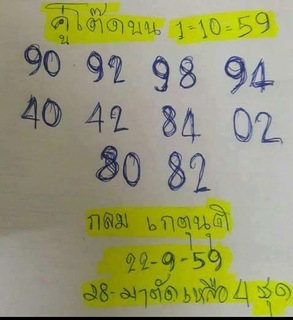 คู่โต๊ดบน 1-10-59
90 92 98 94
40 42 84 02
80 82
กลม เกตุนุติ
22-9-59
28-มาตัดเหลือ 4 ชุด